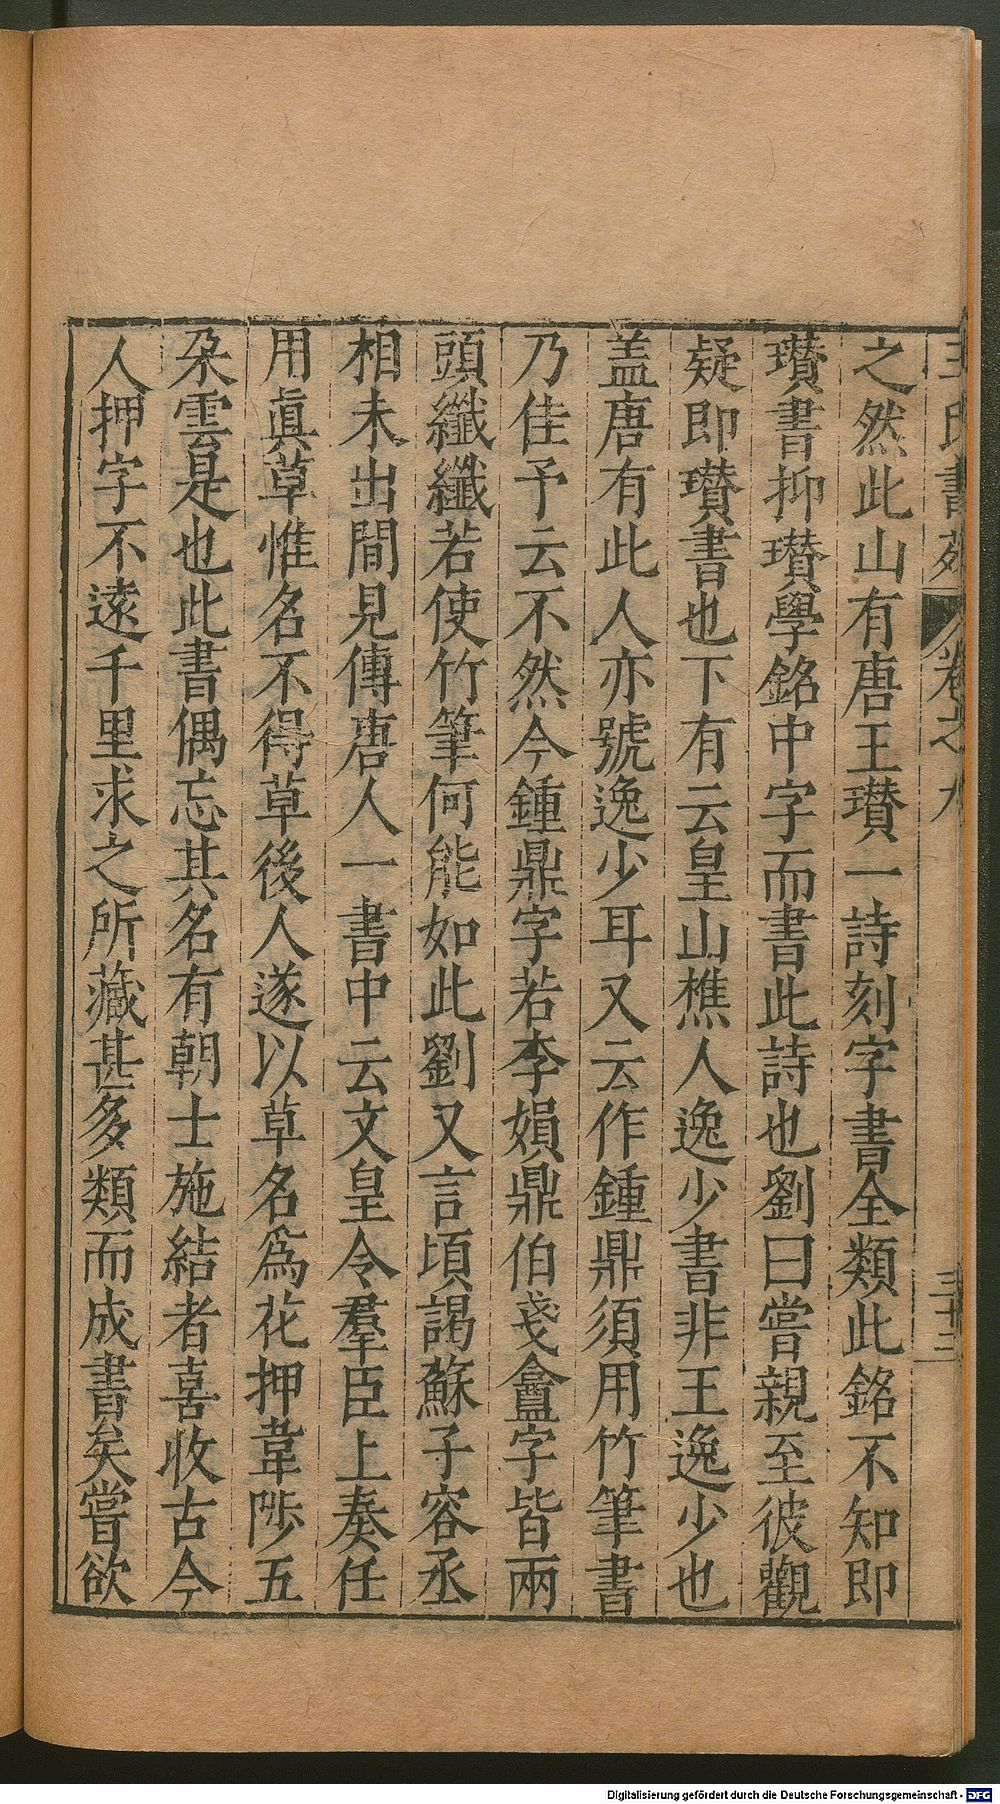 王氏書苑 卷之九 三十三
之然此山有唐王瓚一詩刻字書全類此銘不知即
瓚書抑瓚學銘中字而書此詩也劉曰嘗親至彼觀
疑即瓚書也下有云皇山樵人逸少書非王逸少也
盖唐有此人亦號逸少耳又云作鍾鼎須用竹筆書
乃佳予云不然今鍾鼎字若李娟鼎伯戔盦字皆兩
頭纖纖若使竹筆何能如此劉又言頃謁蘇子容丞
相未出間見傳唐人一書中云文皇令羣臣上奏任
用眞草惟名不得草後人遂以草名爲花押韋陟五
朶雲是也此書偶忘其名有朝士施結者喜收古今
人押字不遠千里求之所藏甚多類而成書矣嘗欲
Digitalisierung gefördert durch die Deutsche Forschungsgemeinschaft - DFG